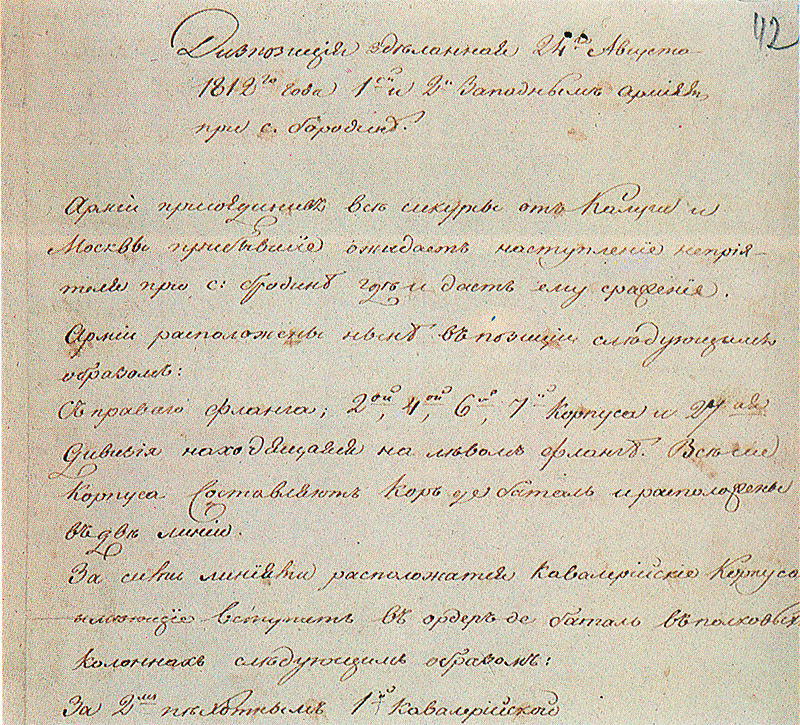 112
Диспозиція здѣланная 24го Августа
1812го года 1ой и 2й Западнымъ арміямъ
при с. бородинѣ.
Арміи присоединивъ всѣ сикурсы отъ Калуги и
Москвы прибывшіе ожидаетъ наступленіе непрія-
теля при с: бродинѣ гдѣ и дастъ ему сраженіе.
Арміи расположены нынѣ въ позиціи слѣдующимъ
образомъ:
Съ праваго фланга; 2ой, 4ой, 6й, 7й Корпуса и 27ая
дивизія находящаяся на лѣвомъ флангѣ. Всѣ сіи
Корпуса Составляютъ Коръ де баталь и расположены
въ двѣ линіи.
За сими линіями расположатся Кавалерійскіе Корпуса
имѣющіе вступить въ ордеръ де баталь въ полковыхъ
колоннахъ слѣдующимъ образомъ:
За 2мъ пѣхотнымъ 1й Кавалерійской